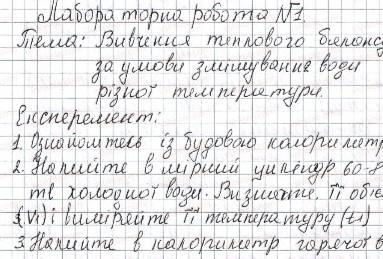 Лабораторна робота №1
Тема: Вивчення теплового балансу
за умови змішування води
різної температури.
Експеремент:
1. Ознайомтесь із будовою калориметр
2. Налийте в мірний циліндр 60-8
ml холодної води. Визначте, її обє
(V1) і виміряйте її температуру (t1)
3. Налийте в калориметр гарячої в